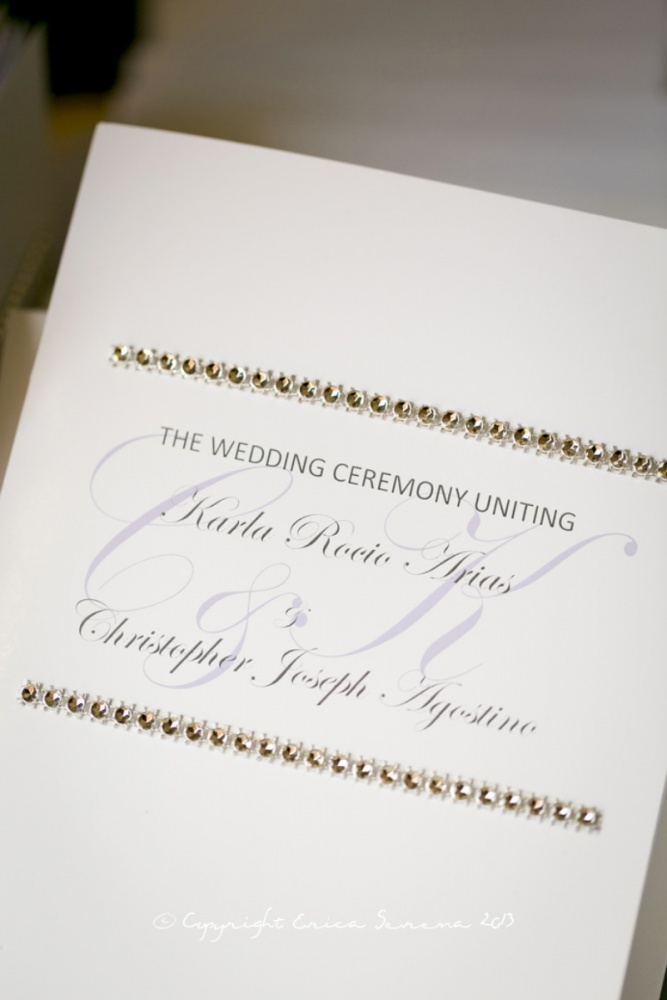 THE WEDDING CEREMONY UNITING
Karla Rocio Arias
&
Christopher Joseph Agostino
C & K
© Copyright Erica Serena 2013